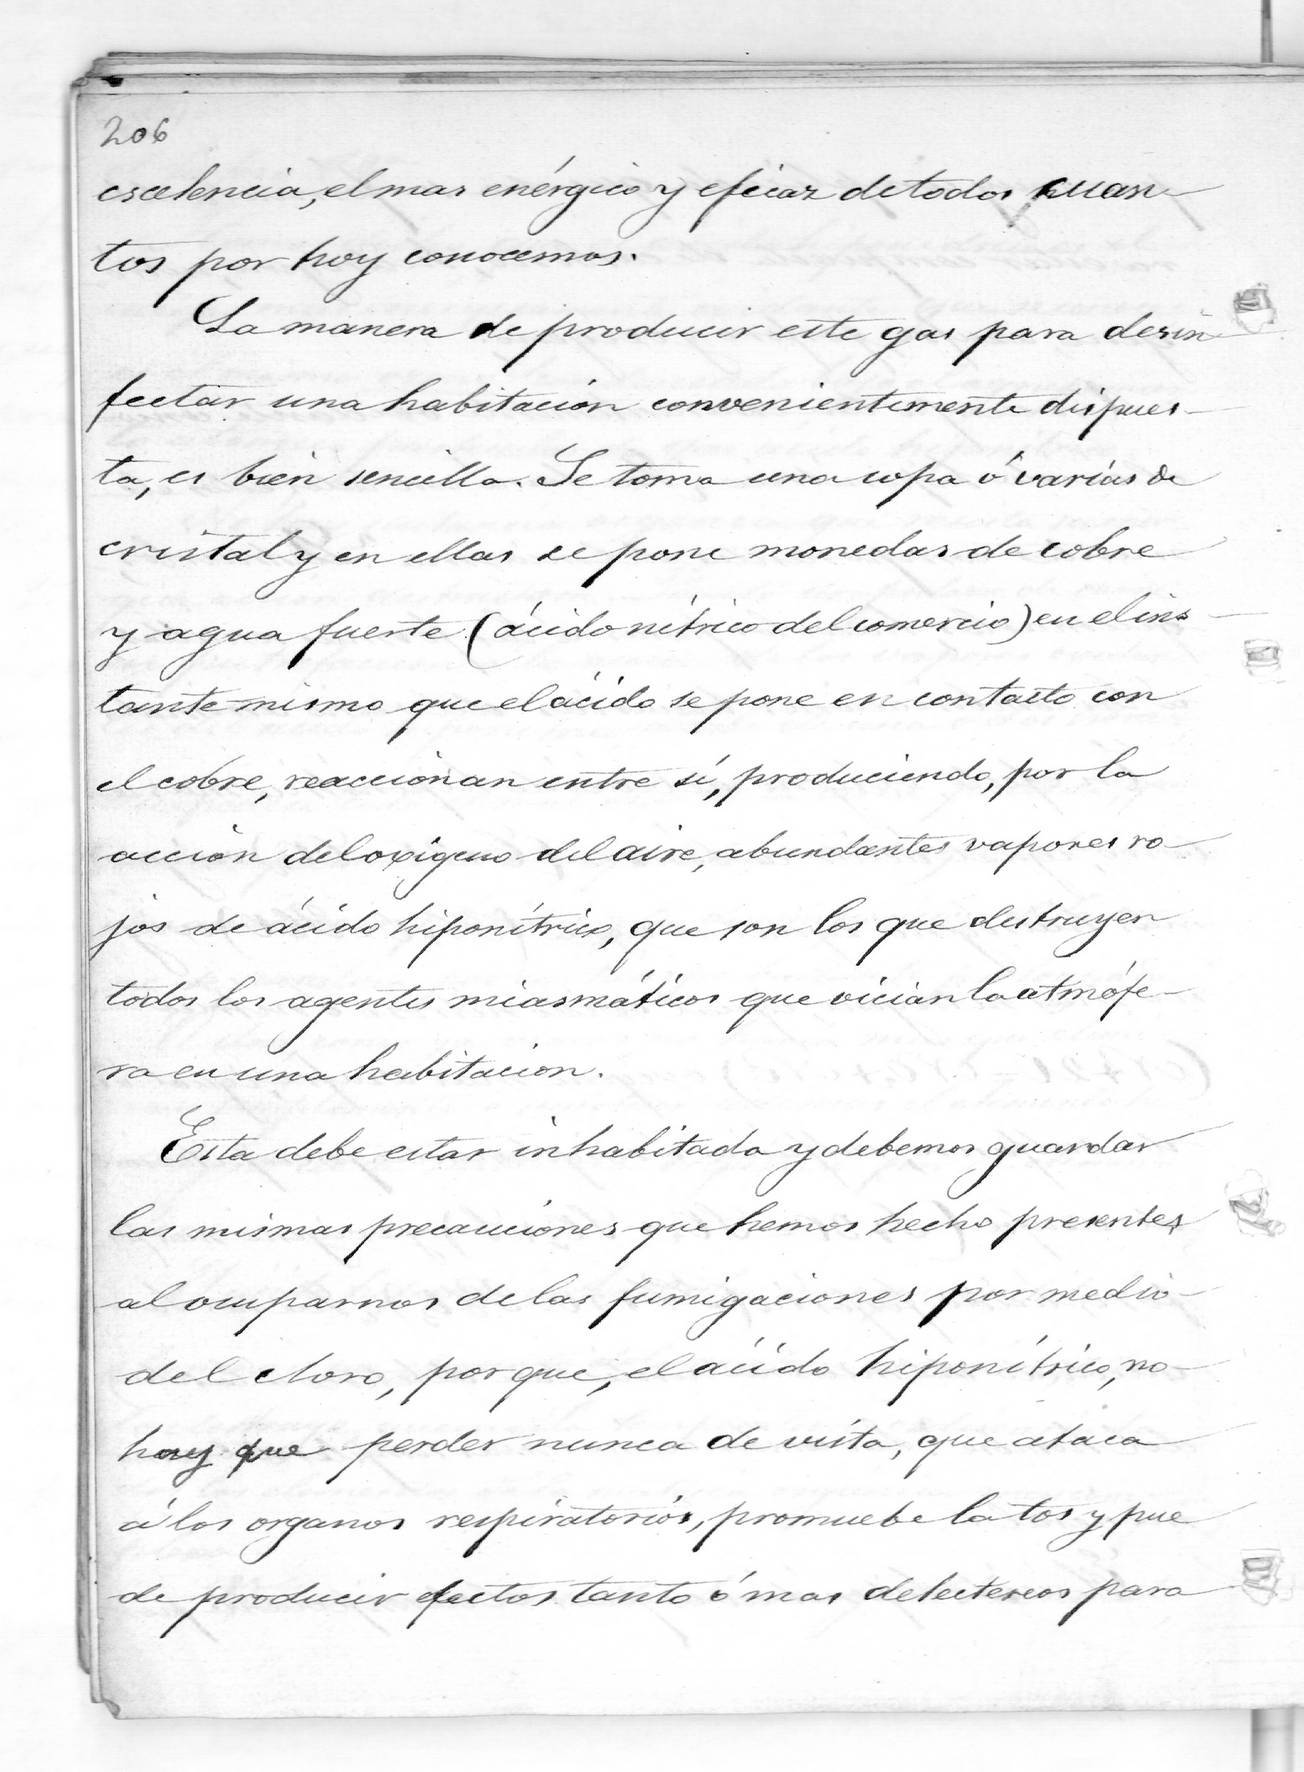 206
escelencia, el mas enérgico y eficaz de todos cuan
tos por hoy conocemos.
La manera de producir este gas para desin
fectar una habitación convenientemente dispues-
ta, es bien sencilla. Se toma una copa ó varias de
cristal y en ellas se pone monedas de cobre
y agua fuerte (ácido nítrico del comercio) en el ins-
tante mismo que el ácido se pone en contacto con
el cobre, reaccionan entre sí, produciendo, por la
acción del oxigeno del aire, abundantes vapores ro-
jos de ácido hiponítrico, que son los que destruyen
todos los agentes miasmáticos que vician la atmófe-
ra en una habitacion.
Esta debe estar inhabitada y debemos guardar
las mismas precauciones que hemos hecho presentes
al ocuparnos de las fumigaciones por medio
del cloro, porque, el ácido hiponítrico, no
hay que perder nunca de vista, que ataca
á los organos respiratorios, promuebe la tos y pue
de producir efectos tanto ó mas delectereos para